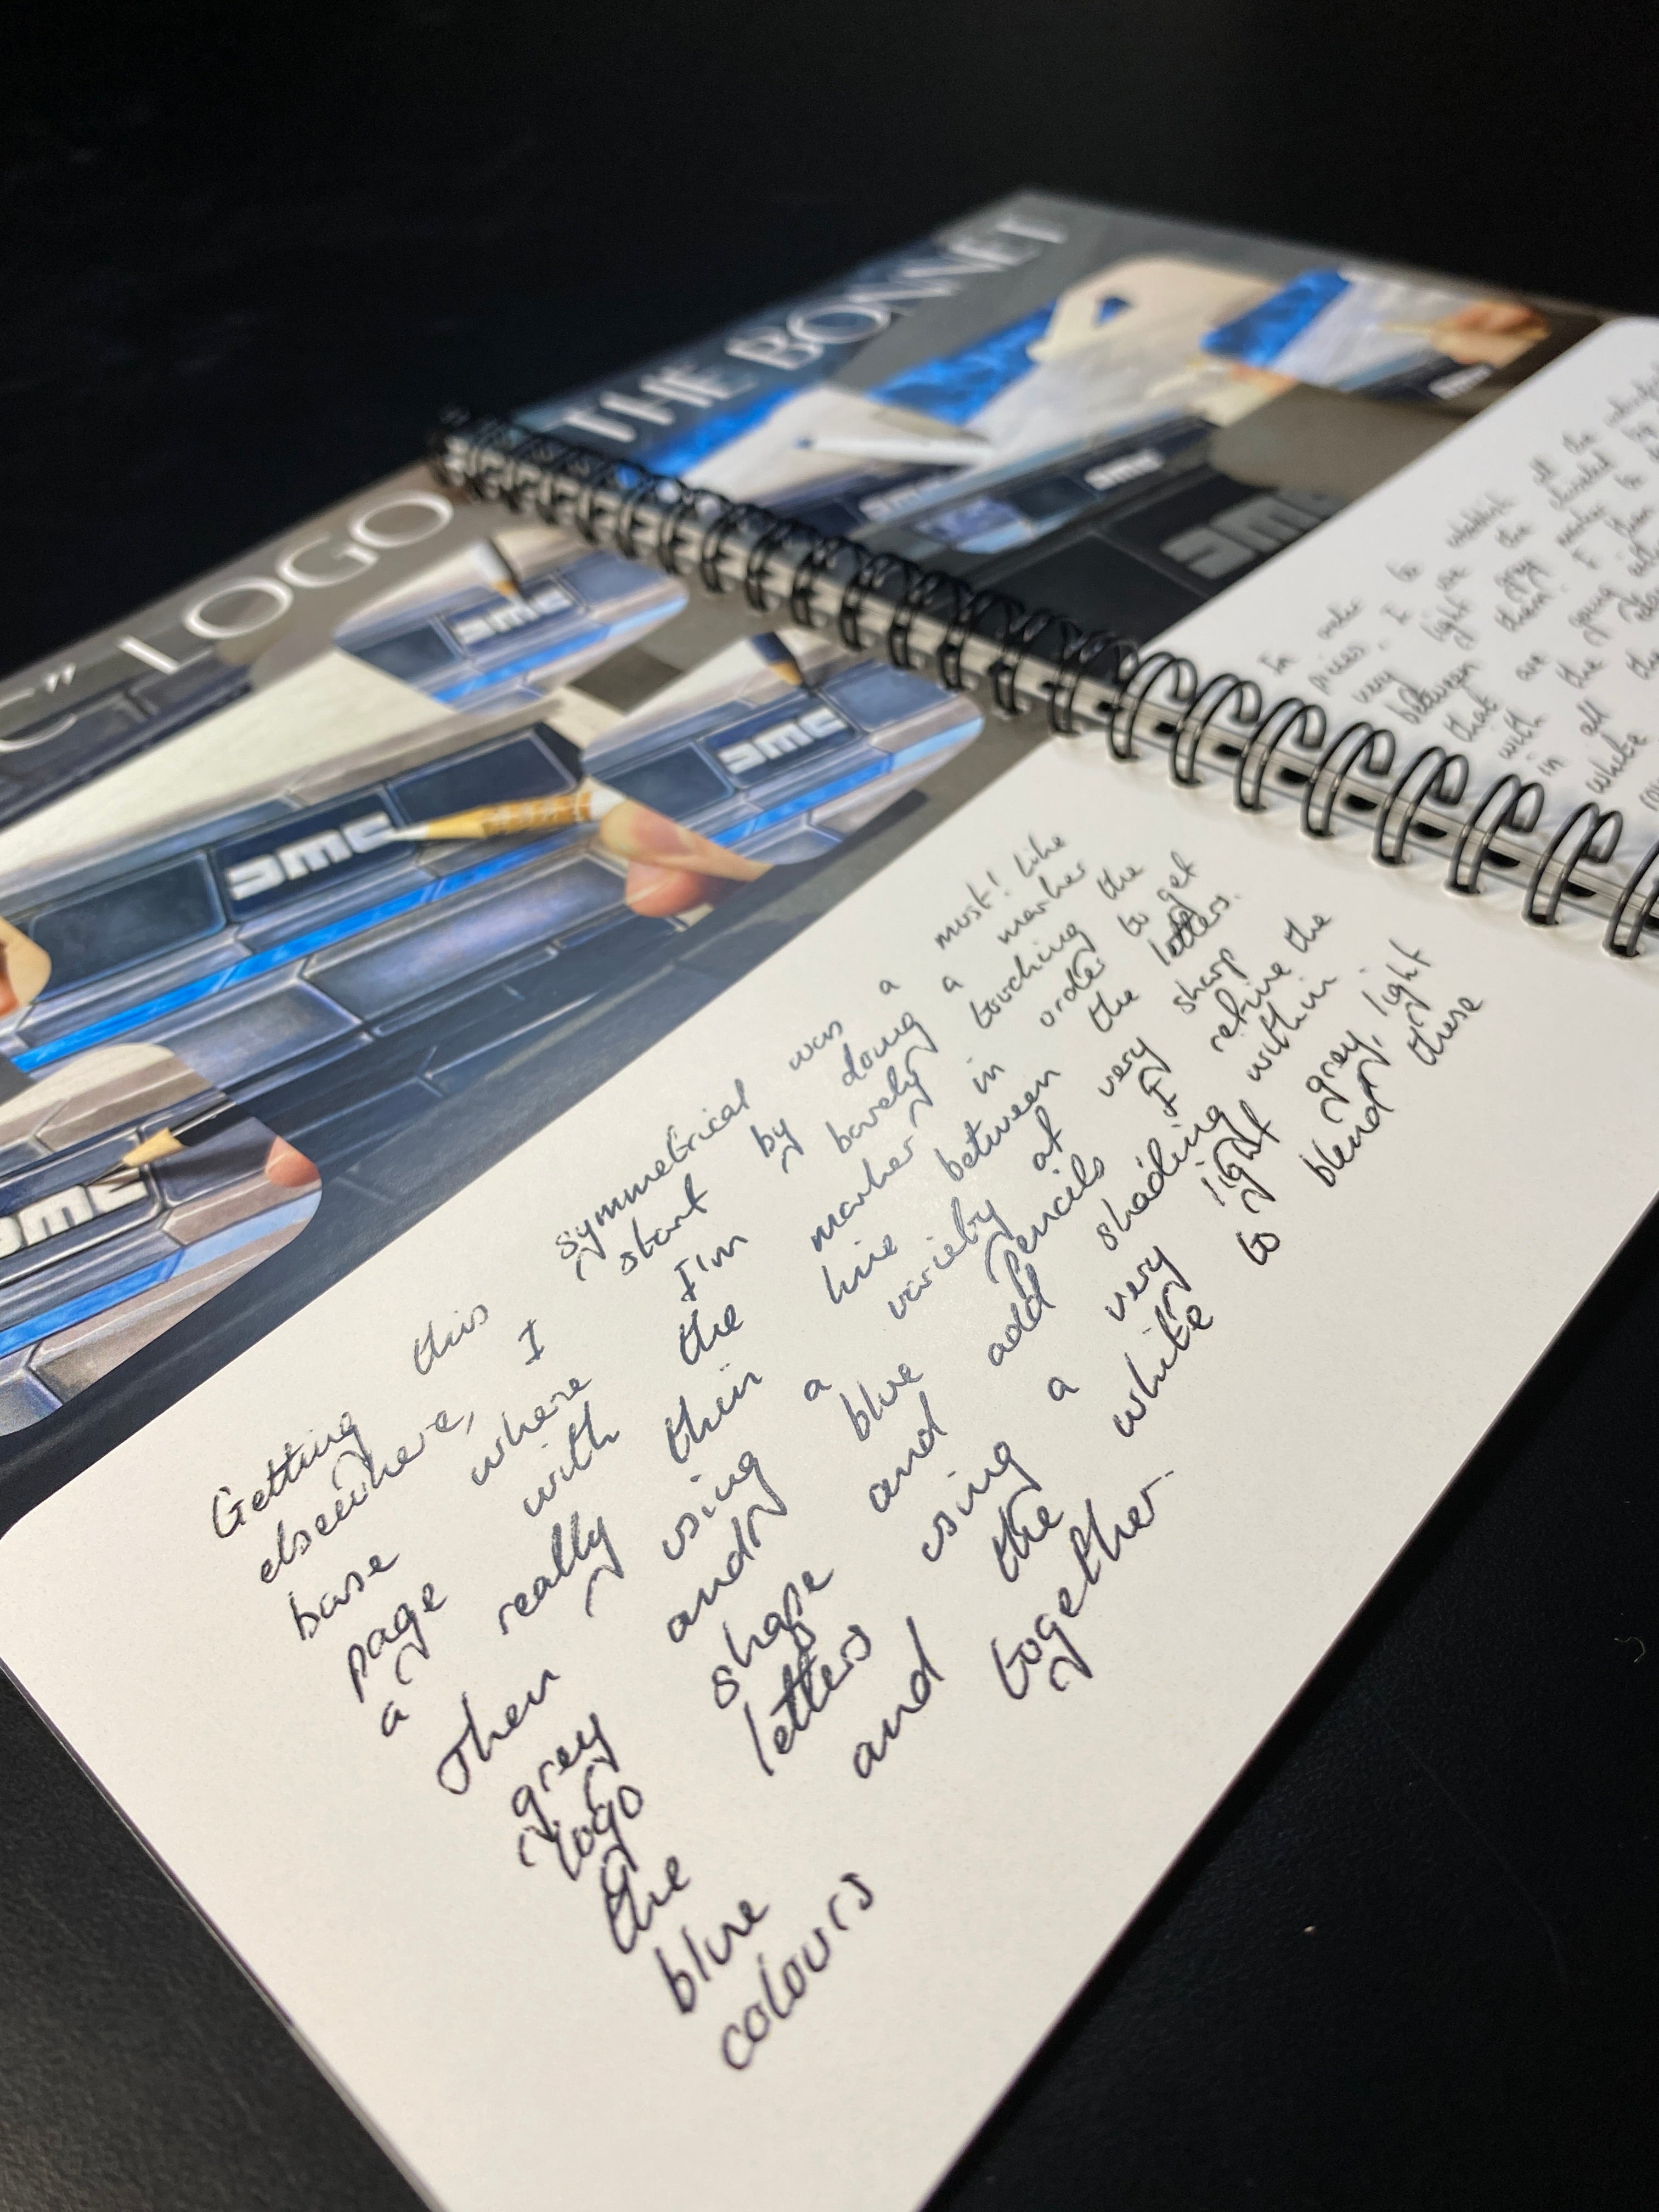 C" LOGO
DMC
DMC
DMC
DMC
Getting this symmetrical was a must! Like
elsewhere, I start by doing a marker
base where I'm barely touching the
page with the marker in order to get
a really thin line between the letters.
Then using a variety at very sharp
grey and blue pencils I refine the
logo shape and add shading within
the letters using a very light grey, light
blue and the white to blend these
colours together.
THE BONNET
DMC
DMC
In order to establish all the
pieces, I use the
very light grey marker to
between them. I then
that are going
with the
in all the
white